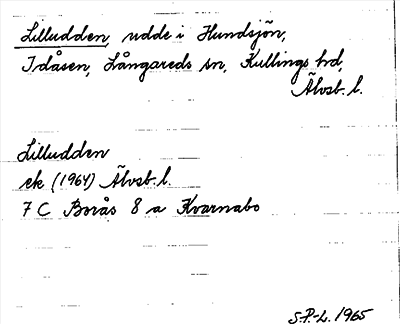 Lilludden, udde i Hundsjön,
Idåsen, Långareds sn, Kullings hd,
Älvsb. l.
Lilludden
ek (1964) Älvsb. l.
7 C Borås 8 a Kvarnabo
S.-P.-L. 1965